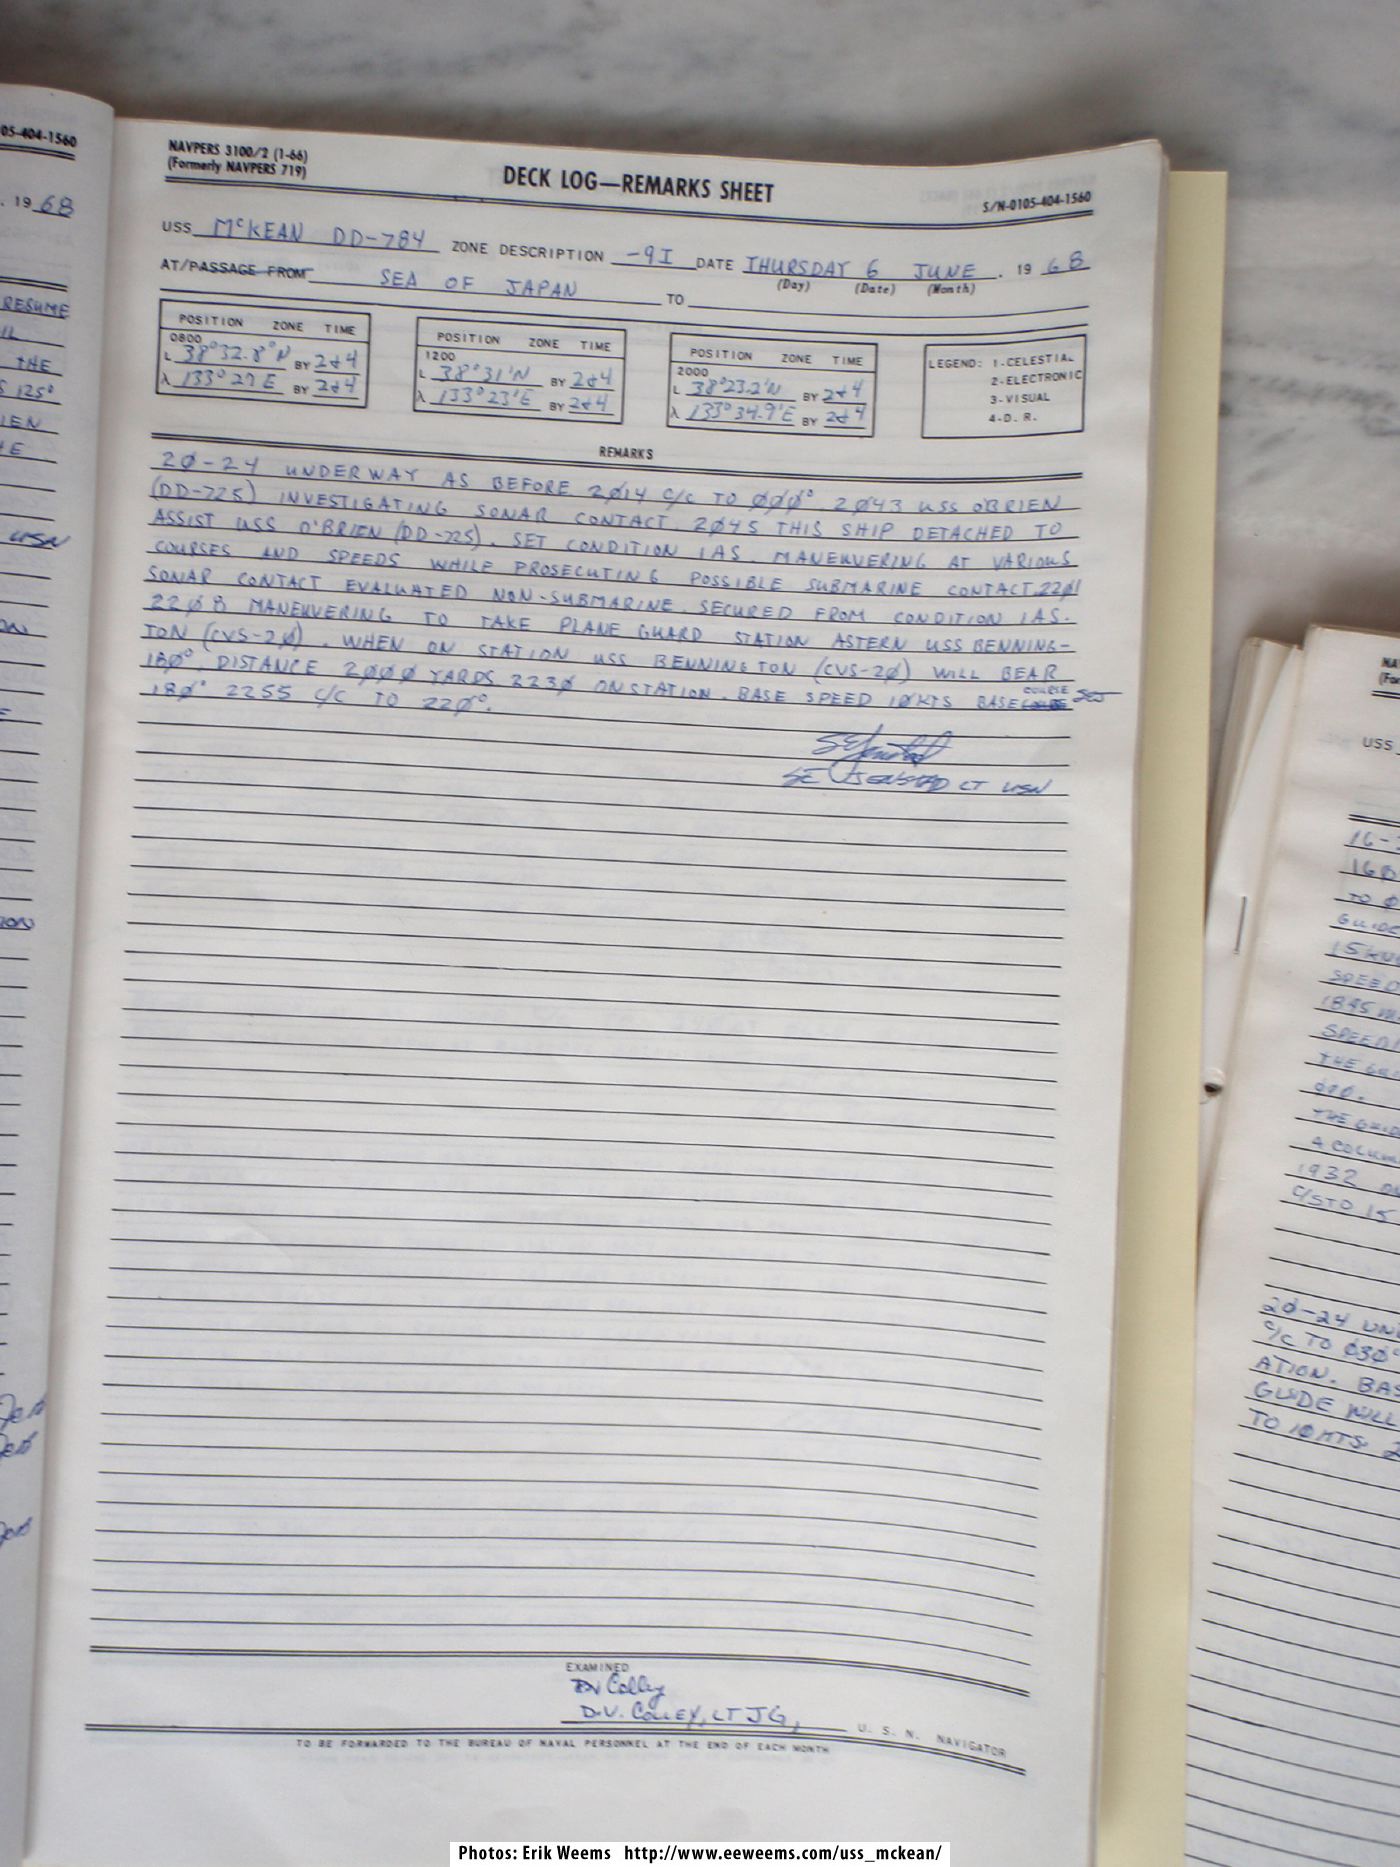 05-404-1560
. 19 68
RESUME
THE
S 125°
IEN
USN
NAVPERS 3100/2 (1-66)
(Formerly NAVPERS 719)
DECK LOG—REMARKS SHEET
S/N-0105-404-1560
USS McKEAN DD-784 ZONE DESCRIPTION -9I DATE THURSDAY 6 JUNE . 19 68
(Day) (Date) (Month)
AT/PASSAGE FROM SEA OF JAPAN TO
POSITION ZONE TIME
0800
L 38°32.8'N BY 2&4
λ 133°27'E BY 2&4
POSITION ZONE TIME
1200
L 38°31'N BY 2&4
λ 133°23'E BY 2&4
POSITION ZONE TIME
2000
L 38°23.2'N BY 2&4
λ 133°34.9'E BY 2&4
LEGEND: 1-CELESTIAL
2-ELECTRONIC
3-VISUAL
4-D. R.
REMARKS
2Ø-24 UNDERWAY AS BEFORE 2Ø14 C/C TO ØØØ°. 2Ø43 USS O'BRIEN
(DD-725) INVESTIGATING SONAR CONTACT. 2Ø45 THIS SHIP DETACHED TO
ASSIST USS O'BRIEN (DD-725). SET CONDITION IAS. MANEUVERING AT VARIOUS
COURSES AND SPEEDS WHILE PROSECUTING POSSIBLE SUBMARINE CONTACT. 22Ø1
SONAR CONTACT EVALUATED NON-SUBMARINE. SECURED FROM CONDITION IAS.
22Ø8 MANEUVERING TO TAKE PLANE GUARD STATION ASTERN USS BENNING-
TON (CVS-2Ø). WHEN ON STATION USS BENNINGTON (CVS-2Ø) WILL BEAR
18Ø°, DISTANCE 2ØØØ YARDS 223Ø ON STATION. BASE SPEED 1ØKTS BASE COURSE
18Ø° 2255 C/C TO 22Ø°.
SE JENSTAD LT USN
EXAMINED
DV Colley
D.V. COLLEY, LT JG, U. S. N. NAVIGATOR
TO BE FORWARDED TO THE BUREAU OF NAVAL PERSONNEL AT THE END OF EACH MONTH
NA
(Fo
USS
16-
TO Ø
GUIDE
15 KN
SPEED
1845 M
SPEED
THE GUI
THE GUID
A COLUM
1932
C/S TO 15
2Ø-24 UN
C/C TO Ø3Ø°
ATION. BAS
GUIDE WILL
TO 1Ø KTS. 2
Photos: Erik Weems http://www.eeweems.com/uss_mckean/